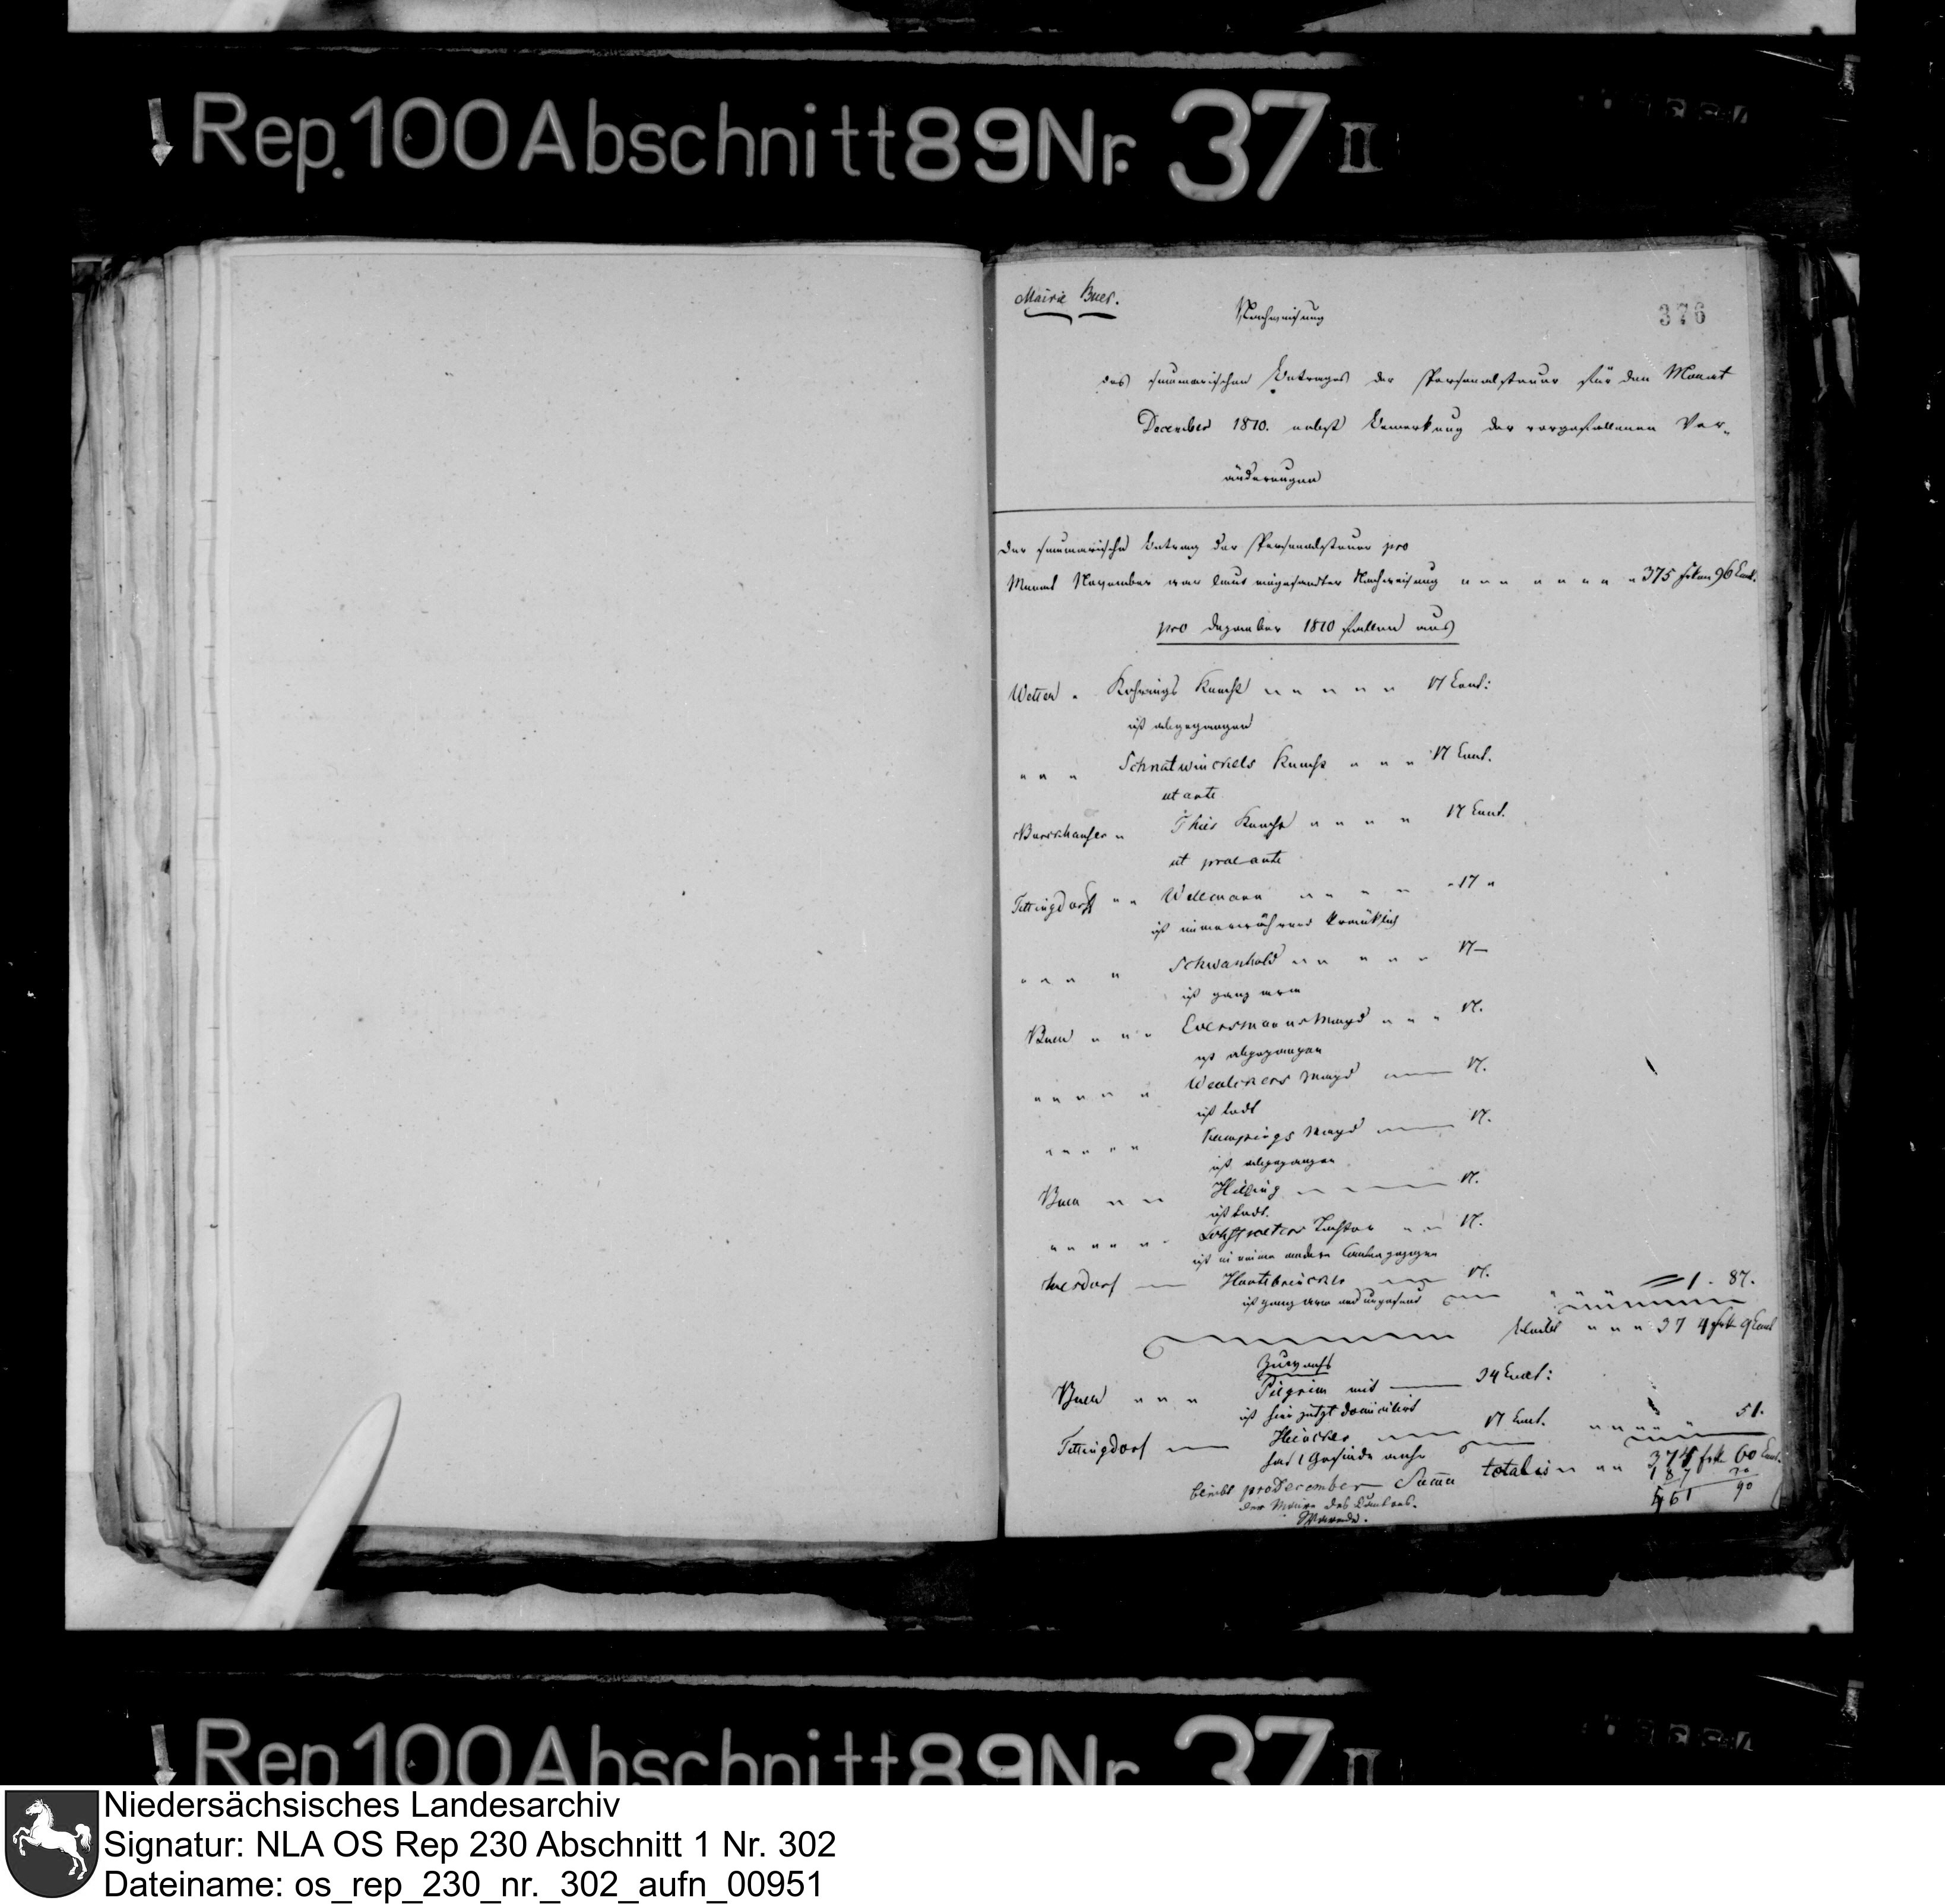 Rep. 100 Abschnitt 89 Nr. 37 II
Mairie Buer.
376
Nachweisung
des summarischen Betrages der Personalsteuer für den Monat
December 1810. nebst Bemerkung der vorgefallenen Ver-
änderungen
Der summarische Betrag der Personalsteuer pro
Monat November war laut eingesandter Nachweisung " " " " " " " " 375 frken 96 Cent.
pro Dezember 1810 fallen aus
Wetter " Kohrings Knecht " " " " " 17 Cent:
ist abgegangen
" " " Schnatwinckels Knecht " " " 17 Cent.
ut ante
" Thies Knecht " " " " 17 Cent.
ut prae ante
Tittingdorff " " Wellmann " " " " " 17 "
ist immerwährend kränklich
" " " " Schwanhold " " " " " 17 –
ist ganz arm
Buer " " " Eversmanns Magd " " " 17.
ist abgegangen
" " " " " Magd 17.
ist todt
" " " " " Kampings Magd 17.
ist abgegangen
Buer " " " 17.
ist todt.
" " " " " Tochter " " 17.
ist in eine andere gezogen
17.
ist ganz arm und
1 - 87.
bleibt " " " 374 frk 9 Cent
Zuwachs
Buer " " " Pilgrim mit 34 Cent:
ist hier jetzt domicilirt
Tittingdorf 17 Cent. " " " " " 51.
hat 1 Gesinde mehr
bleibt pro December Summa totalis " " " 374 frk 60 Cent.
187 30
561 90
Der Maire des Cantons.
Rep. 100 Abschnitt 89 Nr. 37 II
Niedersächsisches Landesarchiv
Signatur: NLA OS Rep 230 Abschnitt 1 Nr. 302
Dateiname: os_rep_230_nr._302_aufn_00951